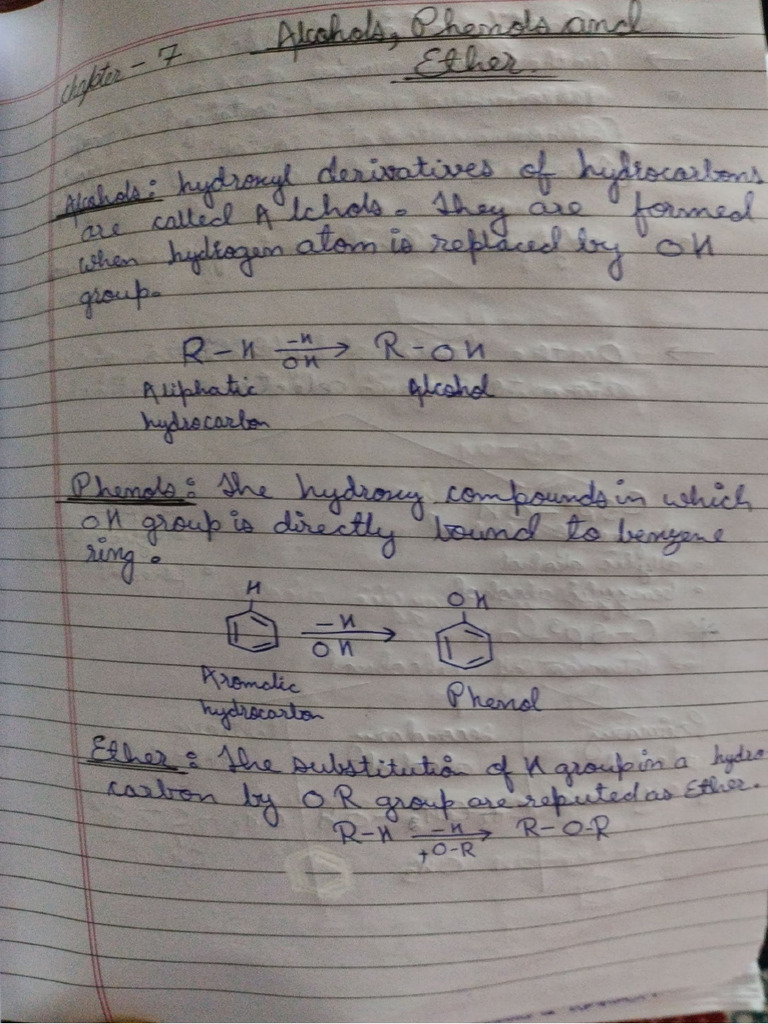 Chapter - 7
Alcohols, Phenols and
Ether
Alcohols: hydroxyl derivatives of hydrocarbons
are called Alchols. They are formed
when hydrogen atom is replaced by OH
group.
R-H -H OH → R-OH
Aliphatic Alcohol
hydrocarbon
Phenols: The hydroxy compounds in which
OH group is directly bound to benzene
ring.
H OH
-H OH →
Aromatic Phenol
hydrocarbon
Ether: The substitution of H group in a hydro
carbon by OR group are reputed as Ether.
R-H -H +O-R → R-O-R